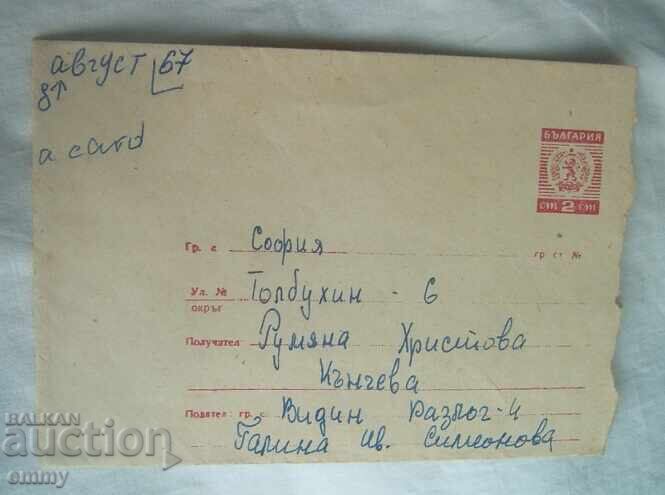 август 67
a card
БЪЛГАРИЯ
ст 2 ст
Гр. с. София гр ст №
Ул. № Толбухин - 6
окръг
Получател Румяна Христова
Кънчева
Подател: гр. с. Видин Разлог-4
Галина Ив. Симеонова
BALKAN
auction
emmy